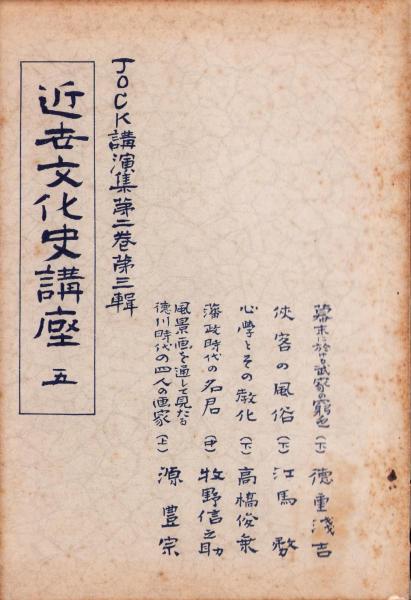 幕末に於ける武家の窮乏（下）　德重淺吉
俠客の風俗（下）　江馬務
心學とその敎化（下）　高橋俊乗
藩政時代の名君（中）　牧野信之助
風景画を通して見たる
德川時代の四人の画家（上）　源豊宗
JOCK講演集第二巻第三輯
近世文化史講座　五